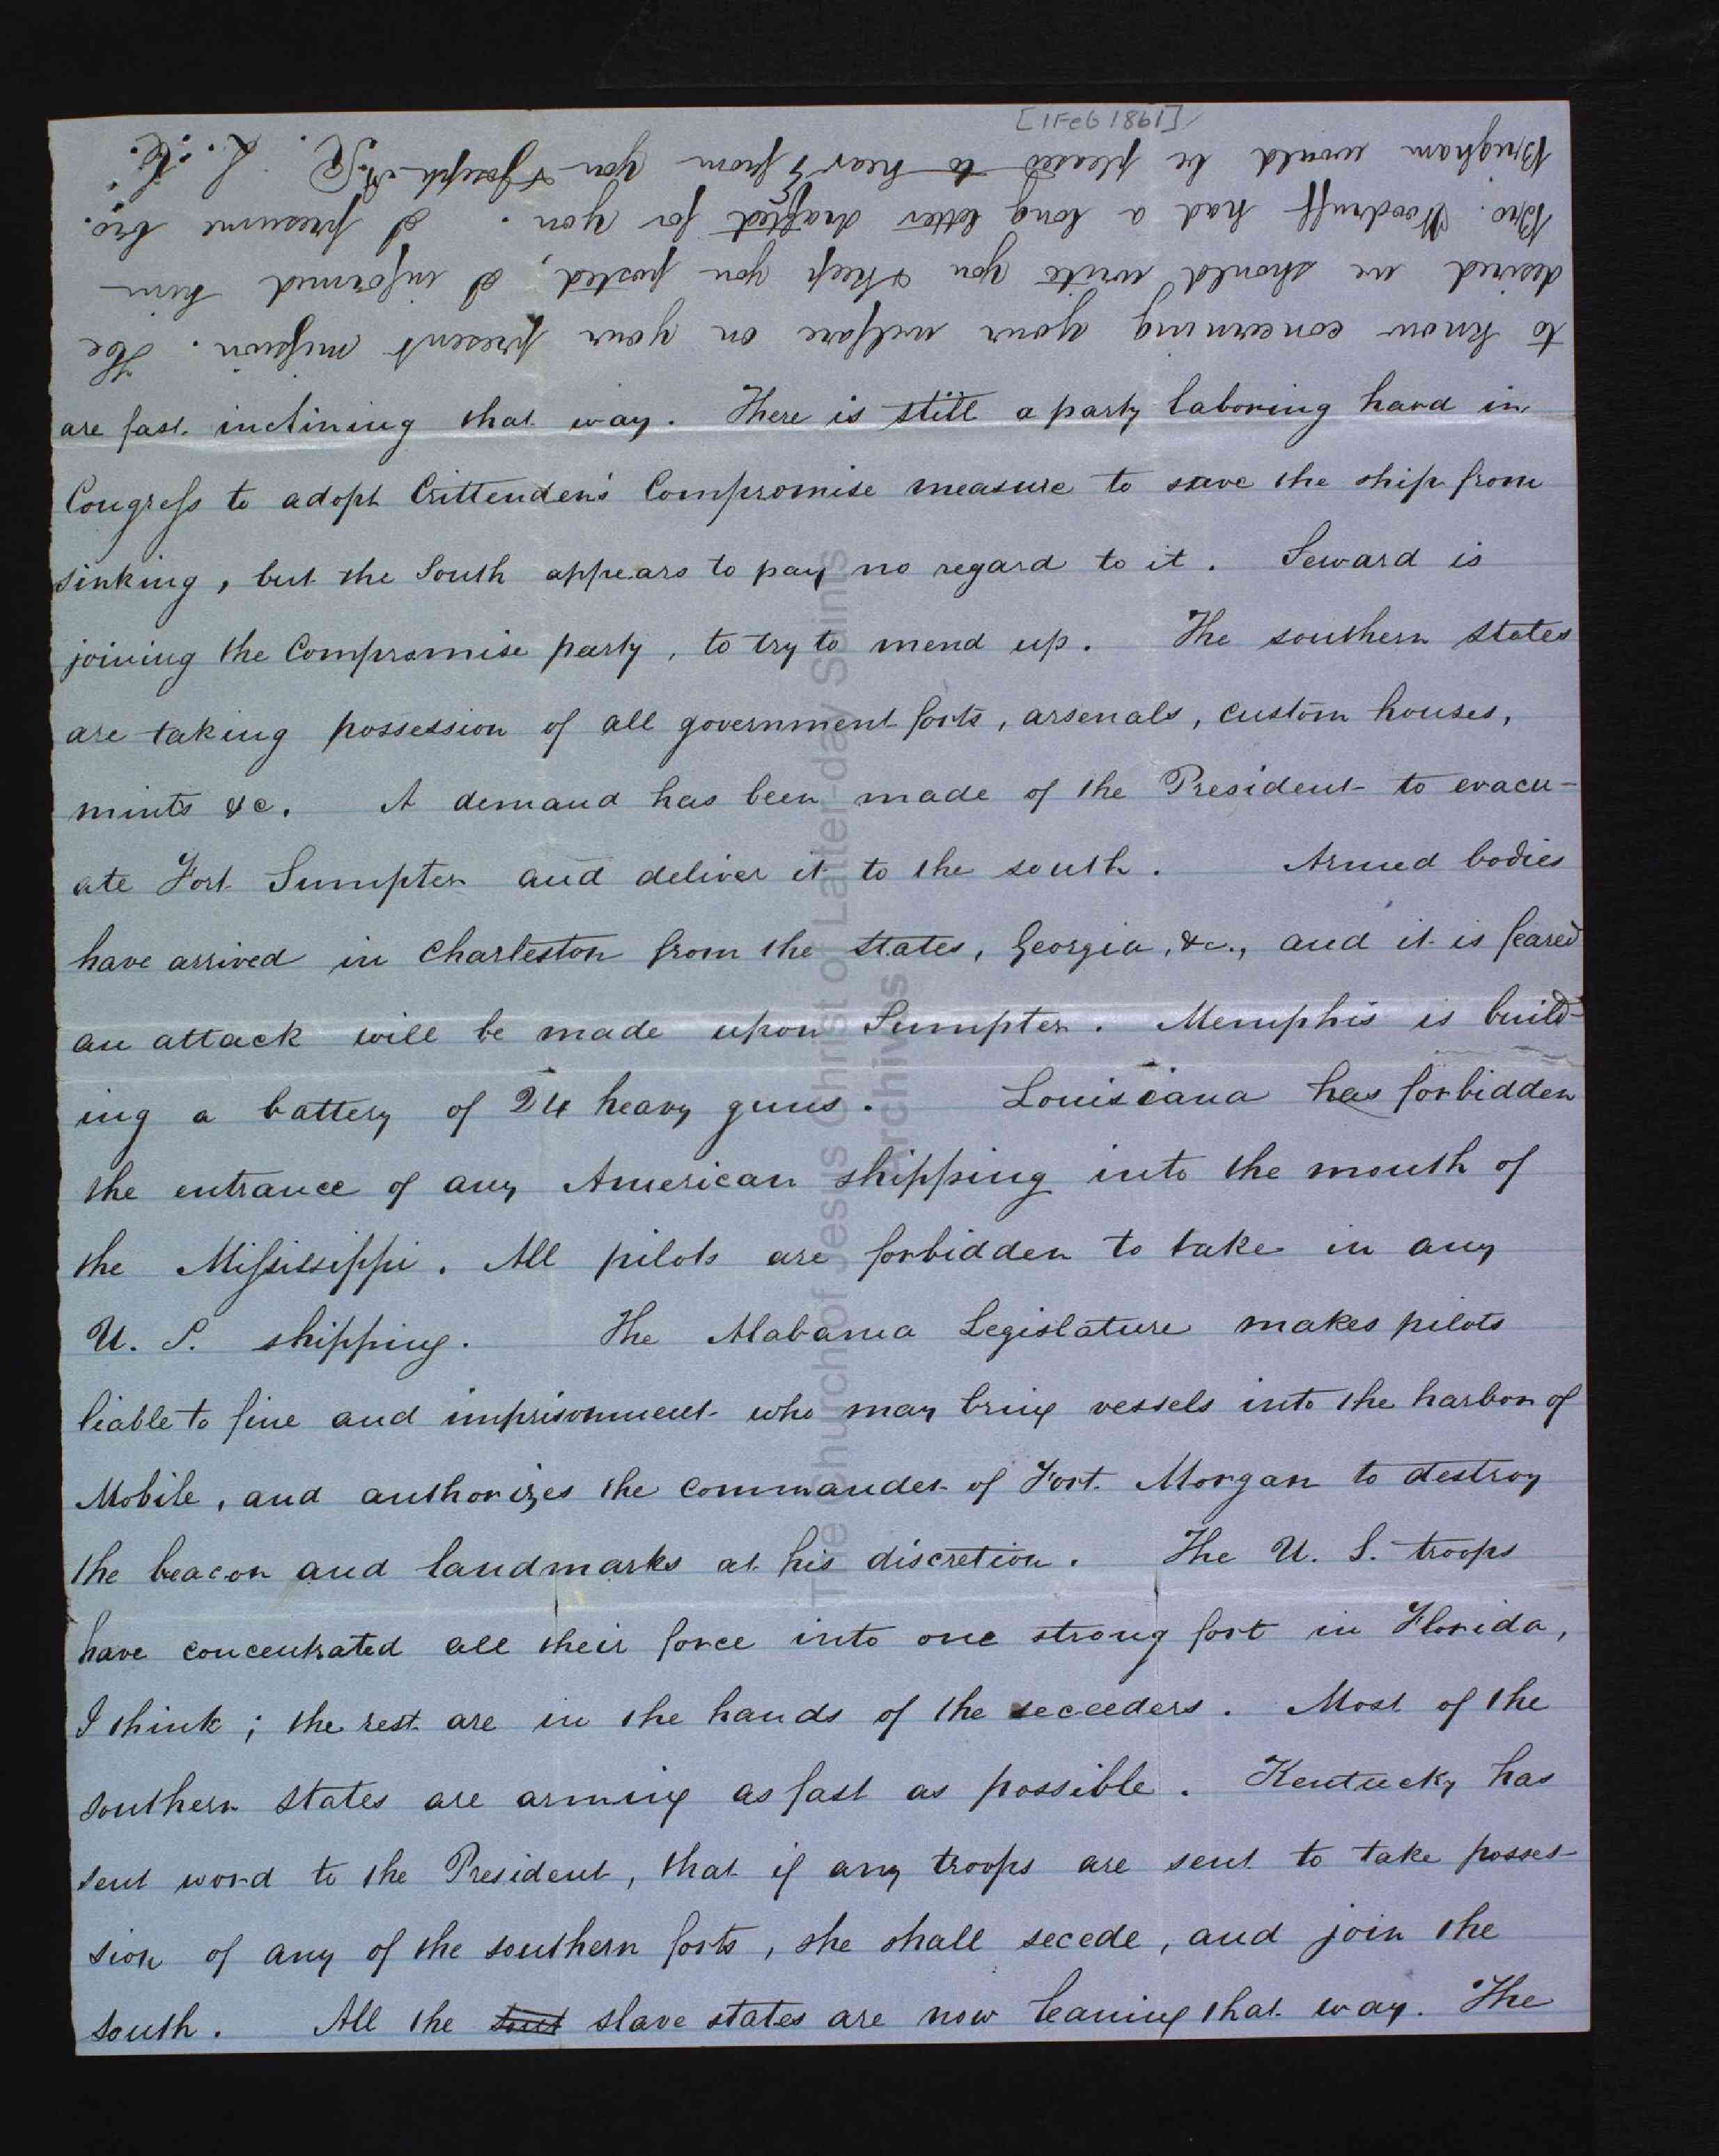 [1 Feb 1861]
to know concerning your welfare on your present mission. He
desired we should write you & keep you posted; I informed him
Bro. Woodruff had a long letter drafted for you. I presume bro.
Brigham would be pleased to hear from you & Joseph.
are fast inclining that way. There is still a party laboring hard in
Congress to adopt Crittenden's Compromise measure to save the ship from
sinking, but the South appears to pay no regard to it. Seward is
joining the Compromise party, to try to mend up. The southern States
are taking possession of all government forts, arsenals, custom houses,
mints &c. A demand has been made of the President to evacu-
ate Fort Sumpter and deliver it to the south. Armed bodies
have arrived in Charleston from the States, Georgia, &c., and it is feared
an attack will be made upon Sumpter. Memphis is build-
ing a battery of 24 heavy guns. Louisiana has forbidden
the entrance of any American shipping into the mouth of
the Mississippi. All pilots are forbidden to take in any
U. S. shipping. The Alabama Legislature makes pilots
liable to fine and imprisonment who may bring vessels into the harbor of
Mobile, and authorizes the commander of Fort Morgan to destroy
the beacon and landmarks at his discretion. The U. S. troops
have concentrated all their force into one strong fort in Florida,
I think; the rest are in the hands of the seceeders. Most of the
southern states are arming as fast as possible. Kentucky has
sent word to the President, that if any troops are sent to take posses-
sion of any of the southern forts, she shall secede, and join the
south. All the slave states are now leaning that way. The
The Church of Jesus Christ of Latter-day Saints
Archives